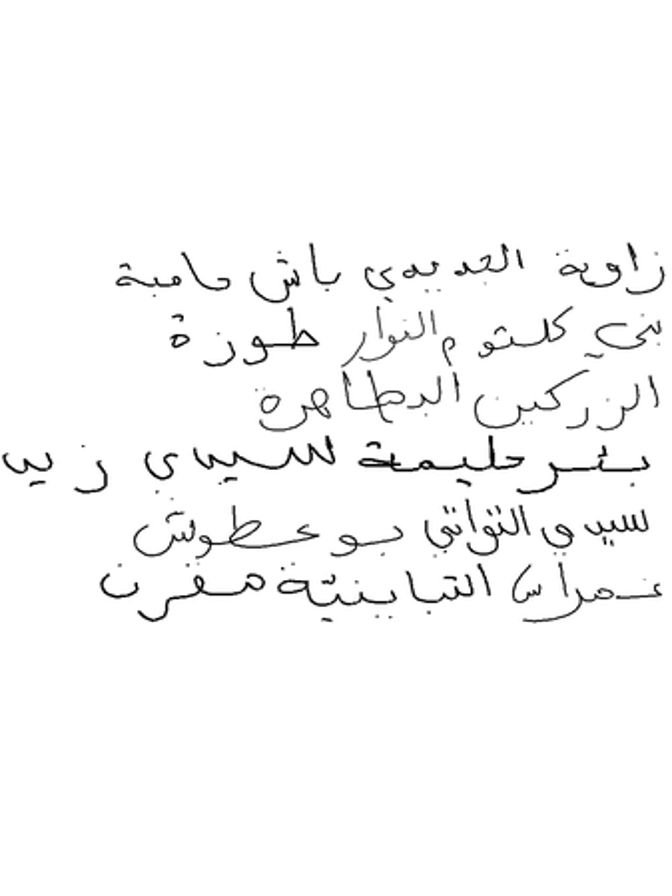 زاوية الجديدي باش حامبة
بني كلثوم النوار طوزة
الزركين البطاهرة
بئر حليمة سيدي زيد
سيدي التواتي بو عطوش
غمراسن التبابنية مقرن